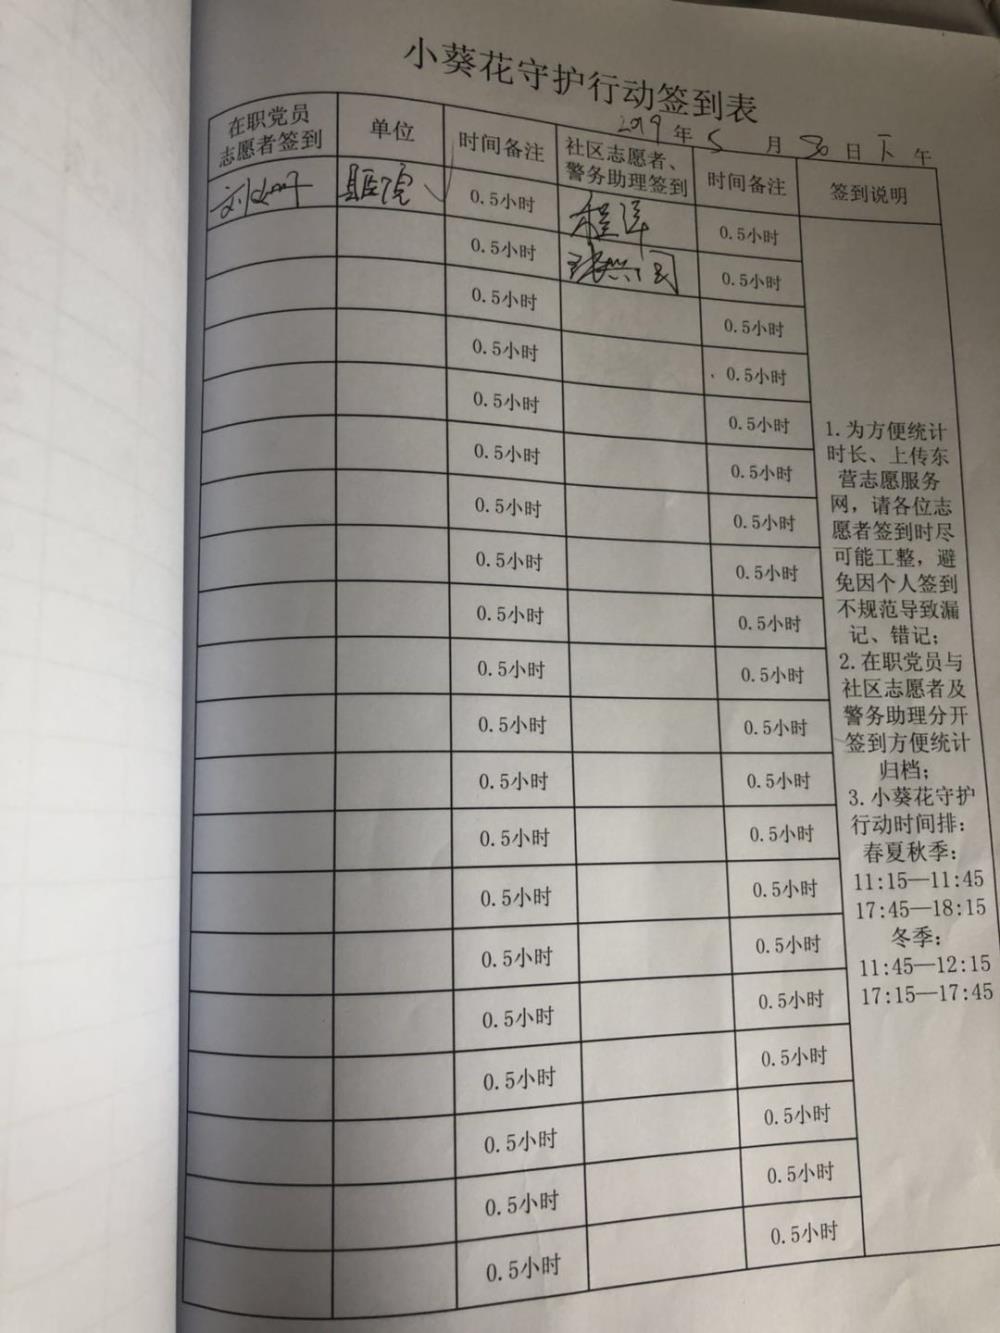 小葵花守护行动签到表
2019年5月30日下午
在职党员
志愿者签到
单位
时间备注
社区志愿者、
警务助理签到
时间备注
签到说明
县医院
0.5小时
程洋
0.5小时
0.5小时
0.5小时
0.5小时
0.5小时
0.5小时
0.5小时
0.5小时
0.5小时
0.5小时
0.5小时
0.5小时
0.5小时
0.5小时
0.5小时
0.5小时
0.5小时
0.5小时
0.5小时
0.5小时
0.5小时
0.5小时
0.5小时
0.5小时
0.5小时
0.5小时
0.5小时
0.5小时
0.5小时
0.5小时
0.5小时
0.5小时
0.5小时
0.5小时
0.5小时
0.5小时
0.5小时
0.5小时
0.5小时
0.5小时
0.5小时
1.为方便统计
时长、上传东
营志愿服务
网，请各位志
愿者签到时尽
可能工整，避
免因个人签到
不规范导致漏
记、错记；
2.在职党员与
社区志愿者及
警务助理分开
签到方便统计
归档；
3.小葵花守护
行动时间排：
春夏秋季：
11:15—11:45
17:45—18:15
冬季；
11:45—12:15
17:15—17:45